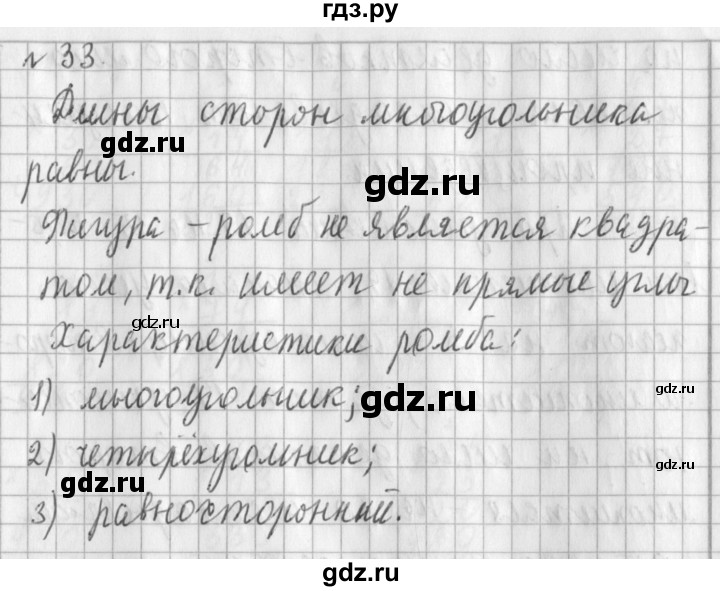 гдз.ру
№ 33.
Длины сторон многоугольника
gdz.ru
равны.
gdz.ru
Фигура – ромб не является квадра-
том, т.к. имеет не прямые углы
gdz.ru
Характеристики ромба:
1) многоугольник;
gdz.ru
gdz.ru
2) четырёхугольник;
gdz.ru
gdz.ru
3) равносторонний.
gdz.ru